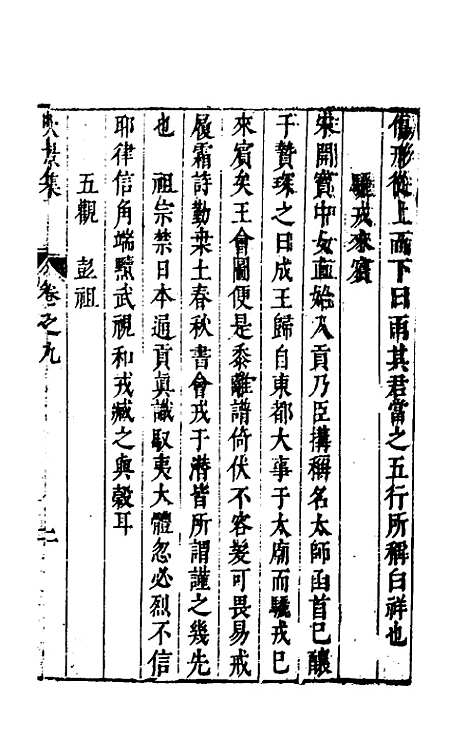 傷形從上而下曰雨其君當之五行所稱白祥也
驪戎來賓
宋開寶中女直始入貢乃臣搆稱名太師函首已釀
于贊琛之日成王歸自東都大事于太廟而驪戎已
來賓矣王會圖便是黍離譜倚伏不容髮可畏易戒
履霜詩勤桑土春秋書會戎于潛皆所謂謹之幾先
也 祖宗禁日本通貢真識馭夷大體忽必烈不信
耶律信角端黷武視和戎臧之與穀耳
五觀 彭祖
集 卷之九